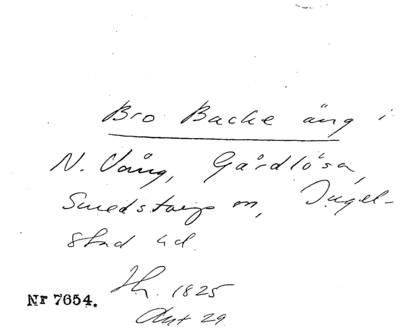 Bro Backe äng i
N. Vång, Gårdlösa,
Smedstorps sn, Ingel-
stad hd.
Hh. 1825
Akt 29
Nr 7654.